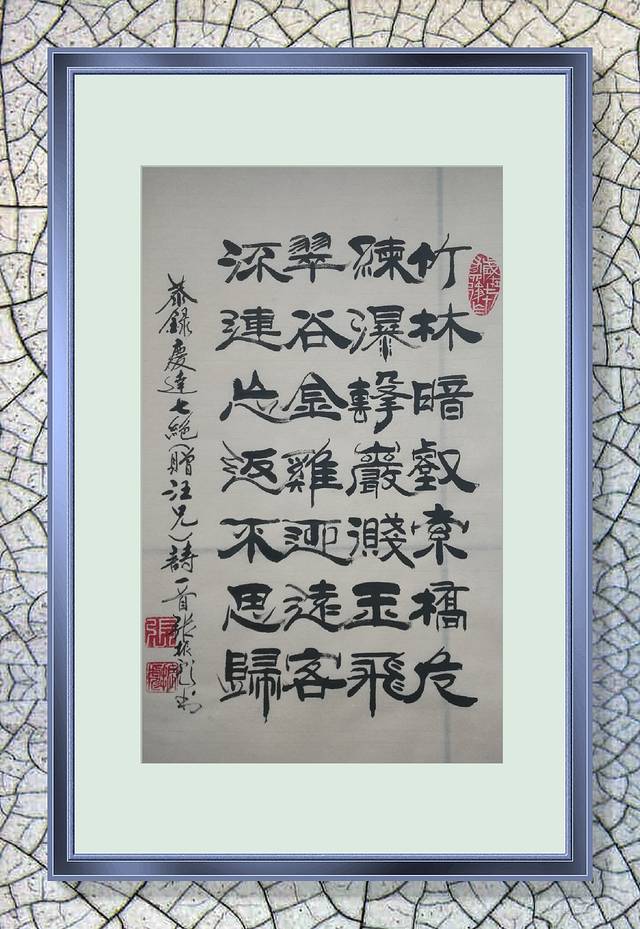 竹林暗壑索橋危
練瀑擊巖濺玉飛
翠谷金雞迎遠客
流連忘返不思歸
恭錄慶達七絕（贈汪兄）詩一首張振书
張